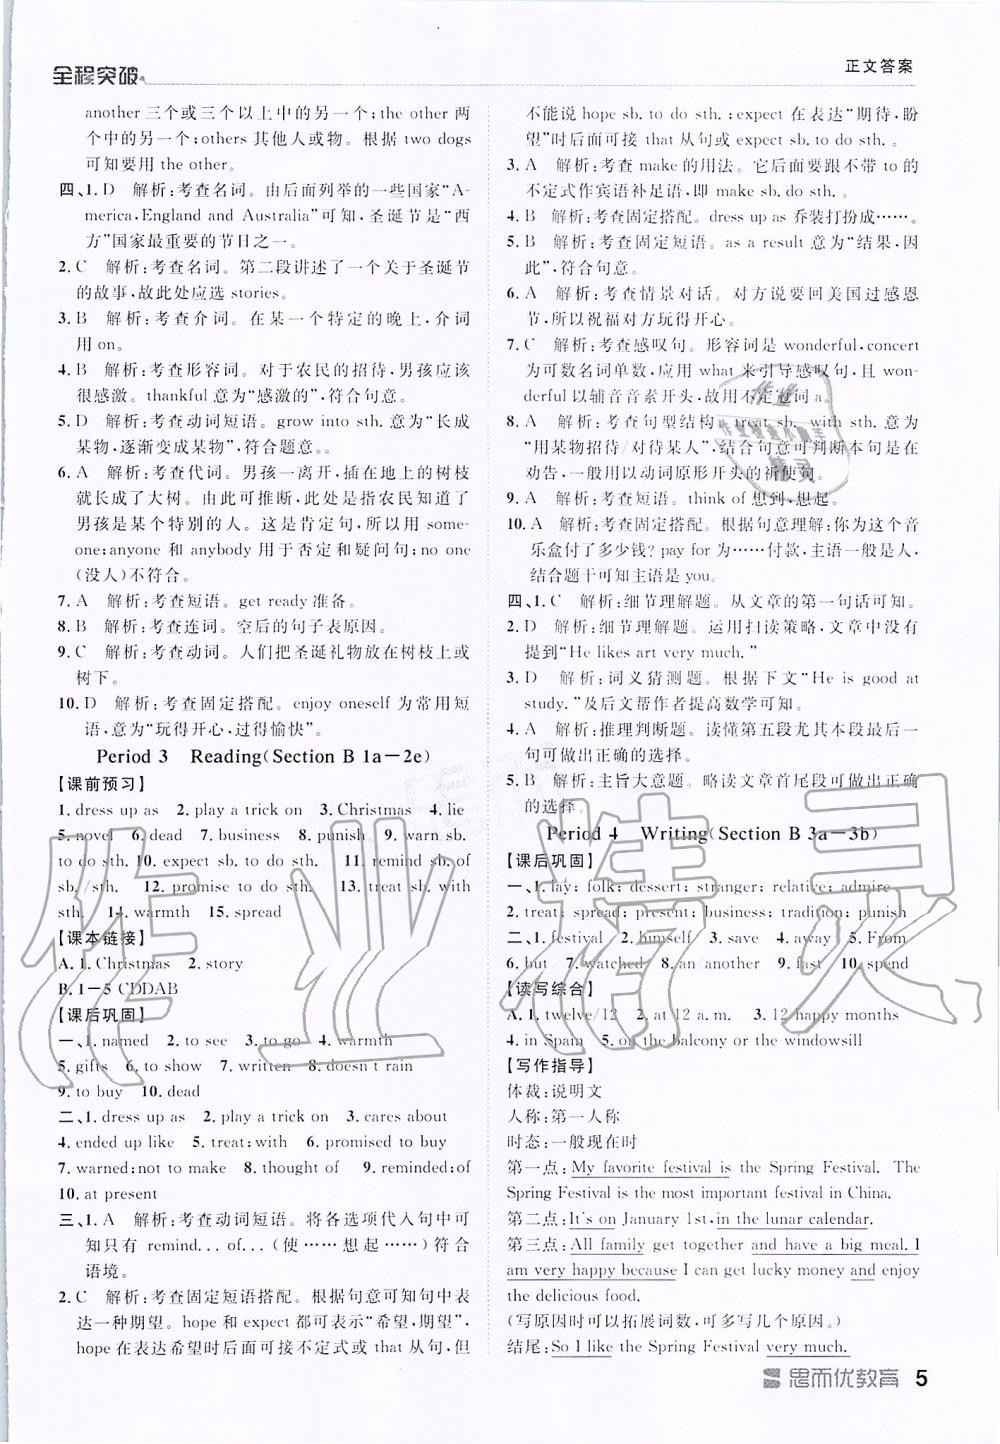 全程突破
正文答案
another 三个或三个以上中的另一个;the other 两
个中的另一个;others 其他人或物。根据 two dogs
可知要用 the other.
四、1. D 解析:考查名词。由后面列举的一些国家“A-
merica,England and Australia”可知,圣诞节是“西
方”国家最重要的节日之一。
2. C 解析:考查名词。第二段讲述了一个关于圣诞节
的故事,故此处应选 stories.
3. B 解析:考查介词。在某一个特定的晚上,介词
用 on。
4. B 解析:考查形容词。对于农民的招待,男孩应该
很感激。thankful 意为“感激的”,符合句意。
5. D 解析:考查动词短语。grow into sth. 意为“长成
某物,逐渐变成某物”,符合题意。。
6. A 解析:考查代词。男孩一离开,插在地上的树枝
就长成了大树。由此可推断,此处是指农民知道了
男孩是某个特别的人。这是肯定句,所以用 some-
one;anyone 和 anybody 用于否定和疑问句;no one
(没人)不符合。
7. A 解析:考查短语。get ready 准备。
8. B 解析:考查连词。空后的句子表原因。
9. C 解析:考查动词。人们把圣诞礼物放在树枝上或
树下。
10. D 解析:考查固定搭配。enjoy oneself 为常用短
语,意为“玩得开心,过得愉快”。
Period 3 Reading(Section B 1a－2e)
【课前预习】
1. dress up as 2. play a trick on 3. Christmas 4. lie
5. novel 6. dead 7. business 8. punish 9. warn sb.
to do sth. 10. expect sb. to do sth. 11. remind sb. of
sb. /sth. 12. promise to do sth. 13. treat sb. with
sth. 14. warmth 15. spread
【课本链接】
A. 1. Christmas 2. story
B. 1－5 CDDAB
【课后巩固】
一、1. named 2. to see 3. to go 4. warmth
5. gifts 6. to show 7. written 8. doesn't rain
9. to buy 10. dead
二、1. dress up as 2. play a trick on 3. cares about
4. ended up like 5. treat;with 6. promised to buy
7. warned;not to make 8. thought of 9. reminded;of
10. at present
三、1. A 解析:考查动词短语。将各选项代入句中可
知只有 remind... of...(使……想起……)符合
语境。
2. C 解析:考查固定短语搭配。根据句意可知句中表
达一种期望。hope 和 expect 都可表示“希望,期望”,
hope 在表达希望时后面可接不定式或 that 从句,但
不能说 hope sb. to do sth. ;expect 在表达“期待,盼
望”时后面可接 that 从句或 expect sb. to do sth. 。
3. A 解析:考查 make 的用法。它后面要跟不带 to 的
不定式作宾语补足语,即 make sb. do sth. 。
4. B 解析:考查固定搭配。dress up as 乔装打扮成……。
5. B 解析:考查固定短语。as a result 意为“结果,因
此”,符合句意。
6. A 解析:考查情景对话。对方说要回美国过感恩
节,所以祝福对方玩得开心。
7. C 解析:考查感叹句。形容词是 wonderful,concert
为可数名词单数,应用 what 来引导感叹句,且 won-
derful 以辅音音素开头,故用不定冠词 a。
8. A 解析:考查句型结构。treat sb. with sth. 意为
“用某物招待/对待某人”,结合句意可判断本句是在
劝告,一般用以动词原形开头的祈使句。
9. A 解析:考查短语。think of 想到,想起。
10. A 解析:考查固定搭配。根据句意理解:你为这个音
乐盒付了多少钱? pay for 为……付款,主语一般是人,
结合题干可知主语是 you。
四、1. C 解析:细节理解题。从文章的第一句话可知。
2. D 解析:细节理解题。运用扫读策略,文章中没有
提到“He likes art very much. ”
3. D 解析:词义猜测题。根据下文“He is good at
study. ”及后文帮作者提高数学可知。
4. A 解析:推理判断题。读懂第五段尤其本段最后一
句可做出正确的选择。
5. B 解析:主旨大意题。略读文章首尾段可做出正确
的选择。
Period 4 Writing(Section B 3a－3b)
【课后巩固】
一、1. lay; folk; dessert; stranger; relative; admire
2. treat; spread; present; business; tradition; punish
二、1. festival 2. himself 3. save 4. away 5. From
6. but 7. watched 8. an another 9. fast 10. spend
【读写综合】
A. 1. twelve/12 2. at 12 a. m. 3. 12 happy months
4. in Spain 5. on the balcony or the windowsill
【写作指导】
体裁:说明文
人称:第一人称
时态:一般现在时
第一点:My favorite festival is the Spring Festival. The
Spring Festival is the most important festival in China.
第二点:It's on January 1st, in the lunar calendar.
第三点:All family get together and have a big meal. I
am very happy because I can get lucky money and enjoy
the delicious food.
(写原因时可以拓展词数,可多写几个原因。)
结尾:So I like the Spring Festival very much.
思而优教育 5
作业精灵